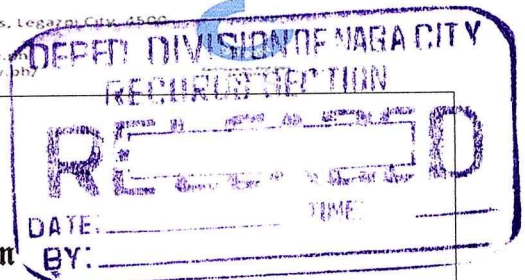 Legazpi City, 4500
DEPED DIVISION OF NAGA CITY
RECORDS SECTION
RELEASED
DATE:
TIME:
BY: